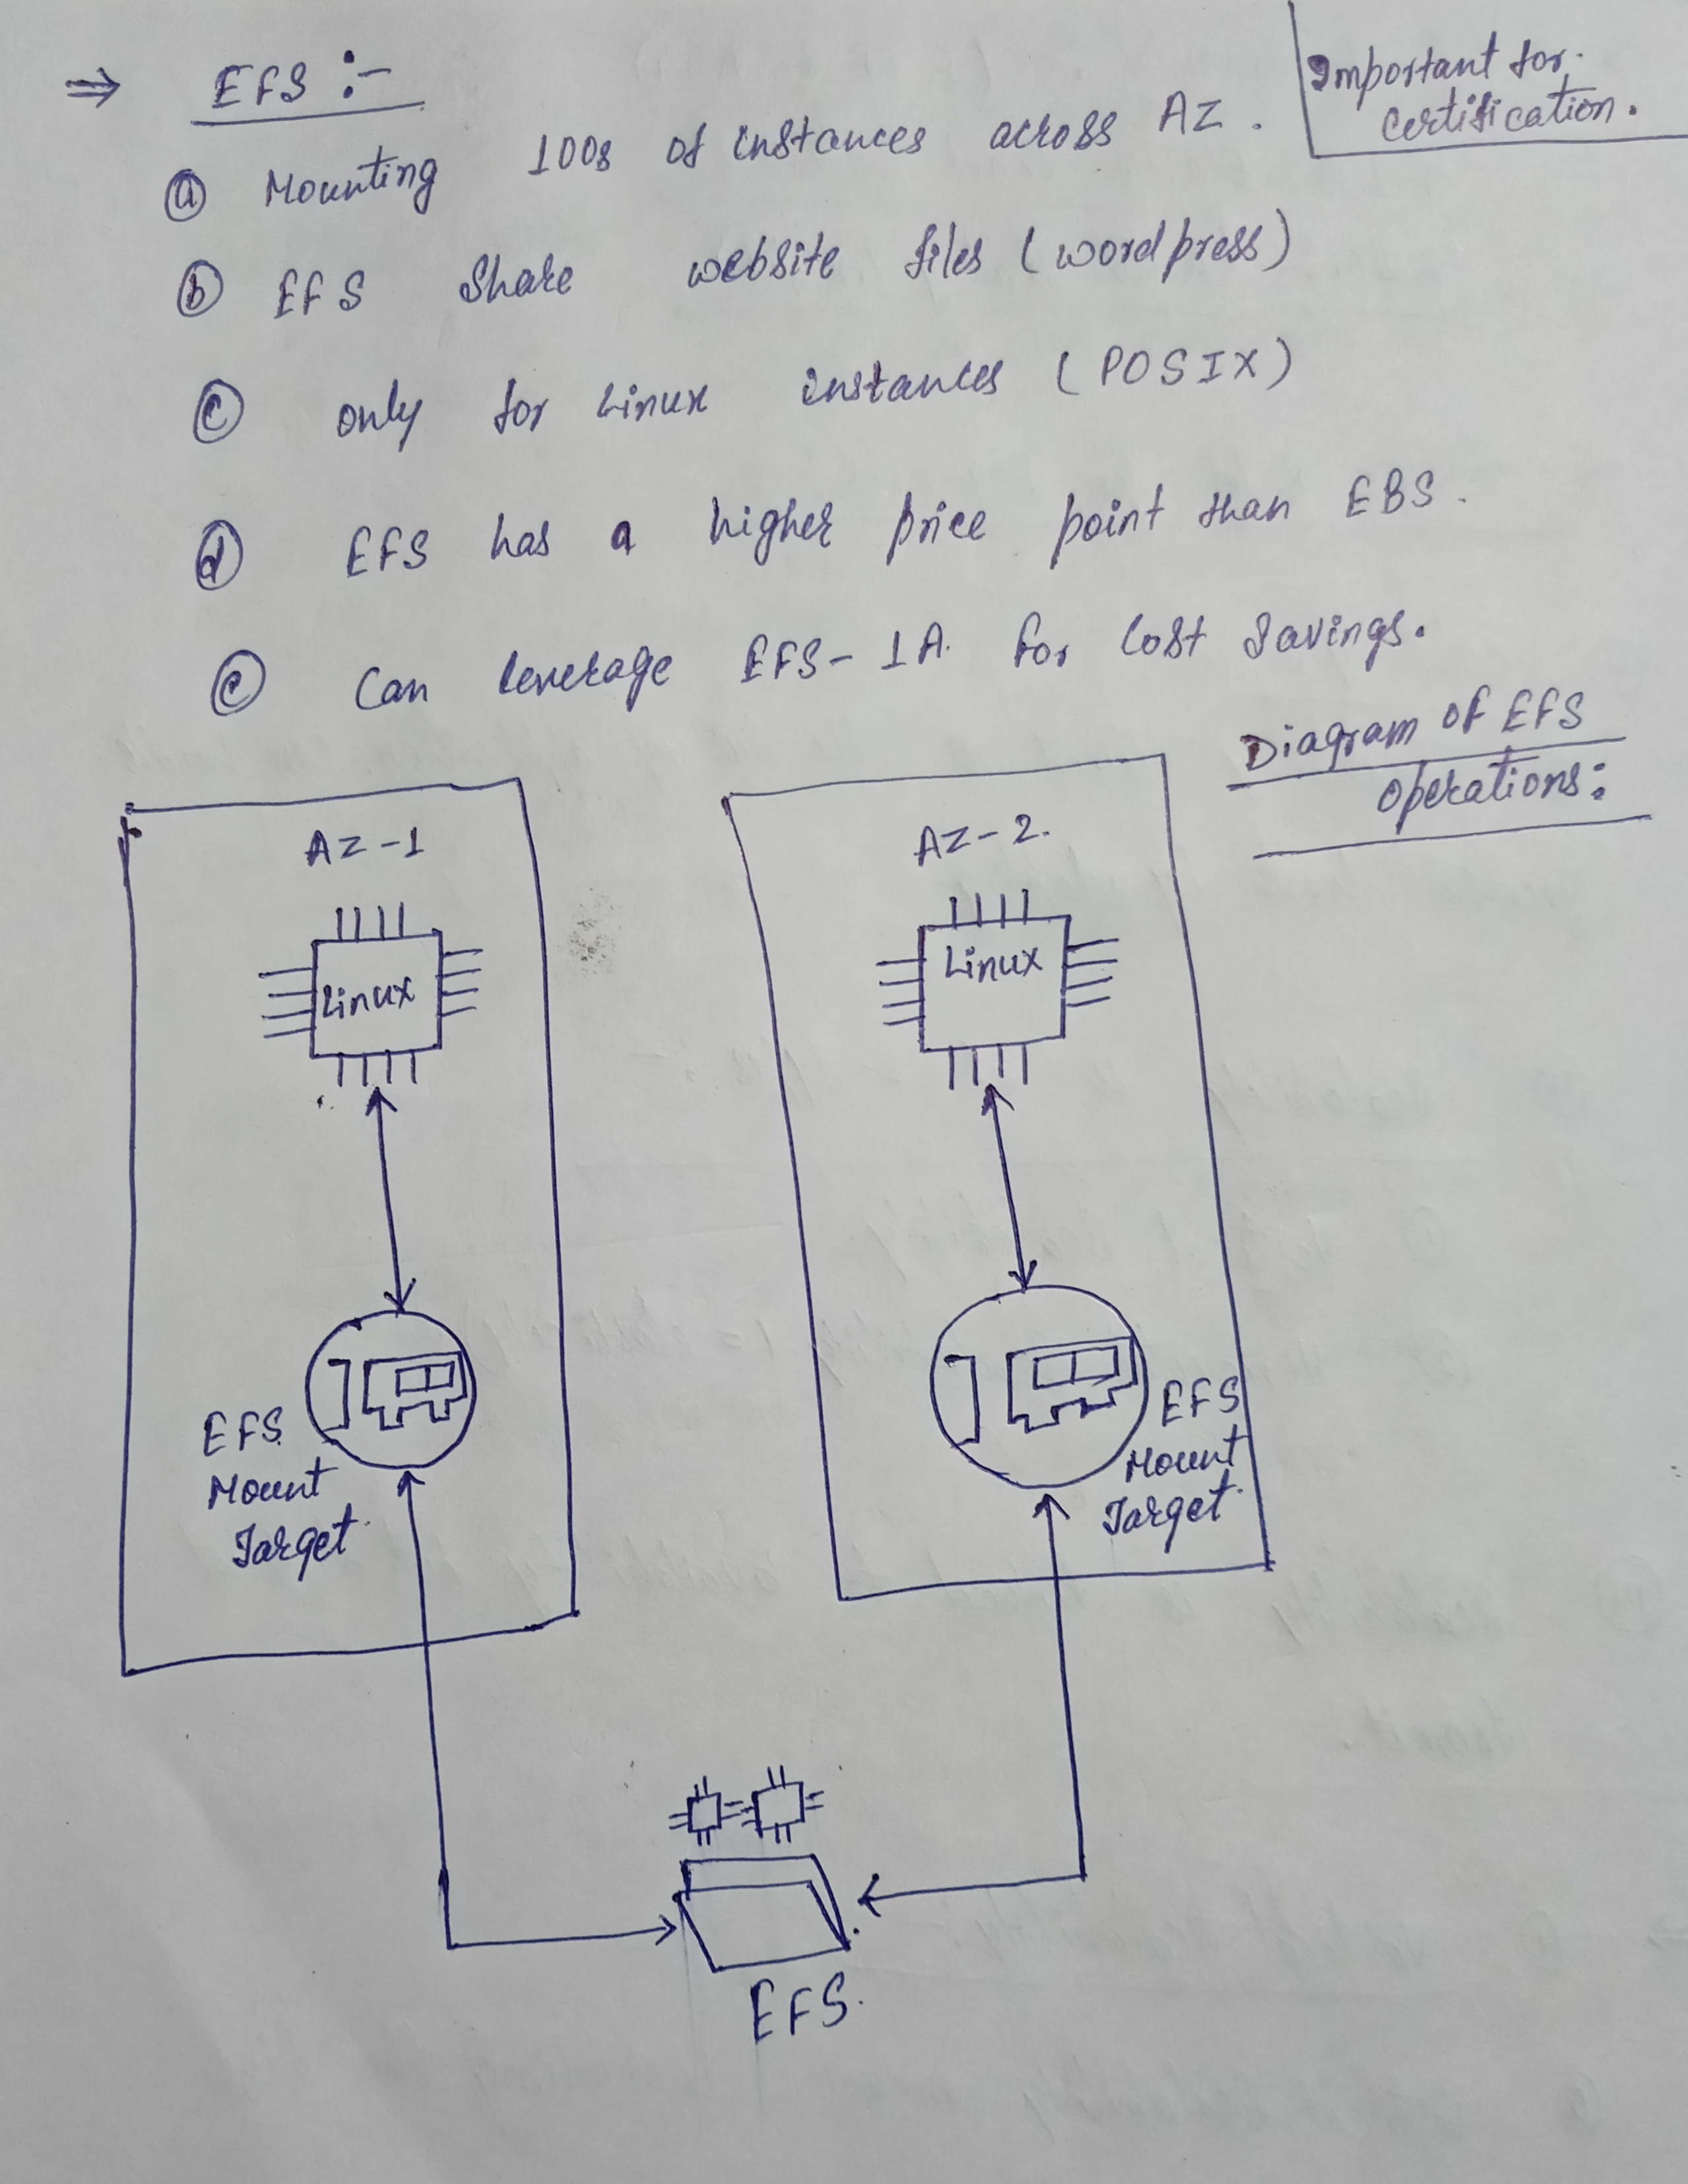 ⇒ EFS :-
Important for.
certification.
ⓐ Mounting 100s of instances across AZ.
ⓑ EFS Share website files (wordpress)
ⓒ only for Linux instances (POSIX)
ⓓ EFS has a higher price point than EBS.
ⓔ Can leverage EFS-IA. for Cost Savings.
Diagram of EFS
operations:
AZ-1
AZ-2.
Linux
Linux
EFS
Mount
Target.
EFS
Mount
Target.
EFS.